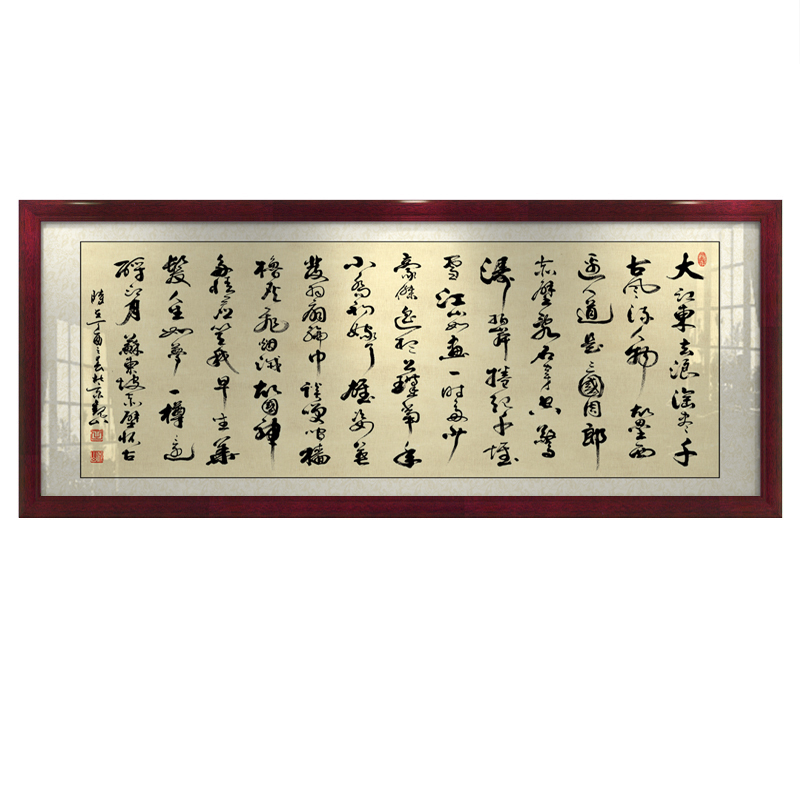 大江東去浪淘盡千
古風流人物故壘西
邊人道是三國周郎
赤壁亂石穿空驚
濤拍岸捲起千堆
雪江山如畫一時多少
豪傑遙想公瑾當年
小喬初嫁了雄姿英
發羽扇綸巾談笑間檣
櫓灰飛煙滅故國神
多情應笑我早生華
髮人生如夢一樽還
酹江月蘇東坡赤壁懷古
時在丁酉之春於北京